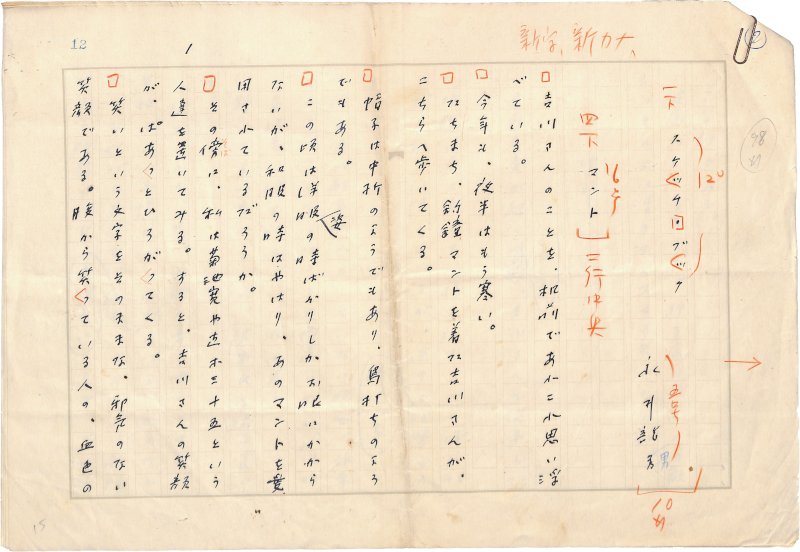 12
1
新字、新カナ、
一下
スケッチ・ブック
120
98
永井龍男
五号
10
四下
マント
16
三行中央
吉川さんのことを、机前であれこれ思い浮
べている。
今年も、夜半はもう寒い。
たちまち、釣鐘マントを着た吉川さんが、
こちらへ歩いてくる。
帽子は中折のようでもあり、鳥打ちのよう
でもある。
この頃は洋服の時ばかりしかお眼にかから
姿
ないが、和服の時はやはり、あのマントを愛
用されているだろうか。
その傍に、私は菊池寛や直木三十五という
人達を置いてみる。すると、吉川さんの笑顔
が、ぱあっとひろがってくる。
笑いという文字をそのままな、邪気のない
笑顔である。腹から笑っている人の、血色の
15